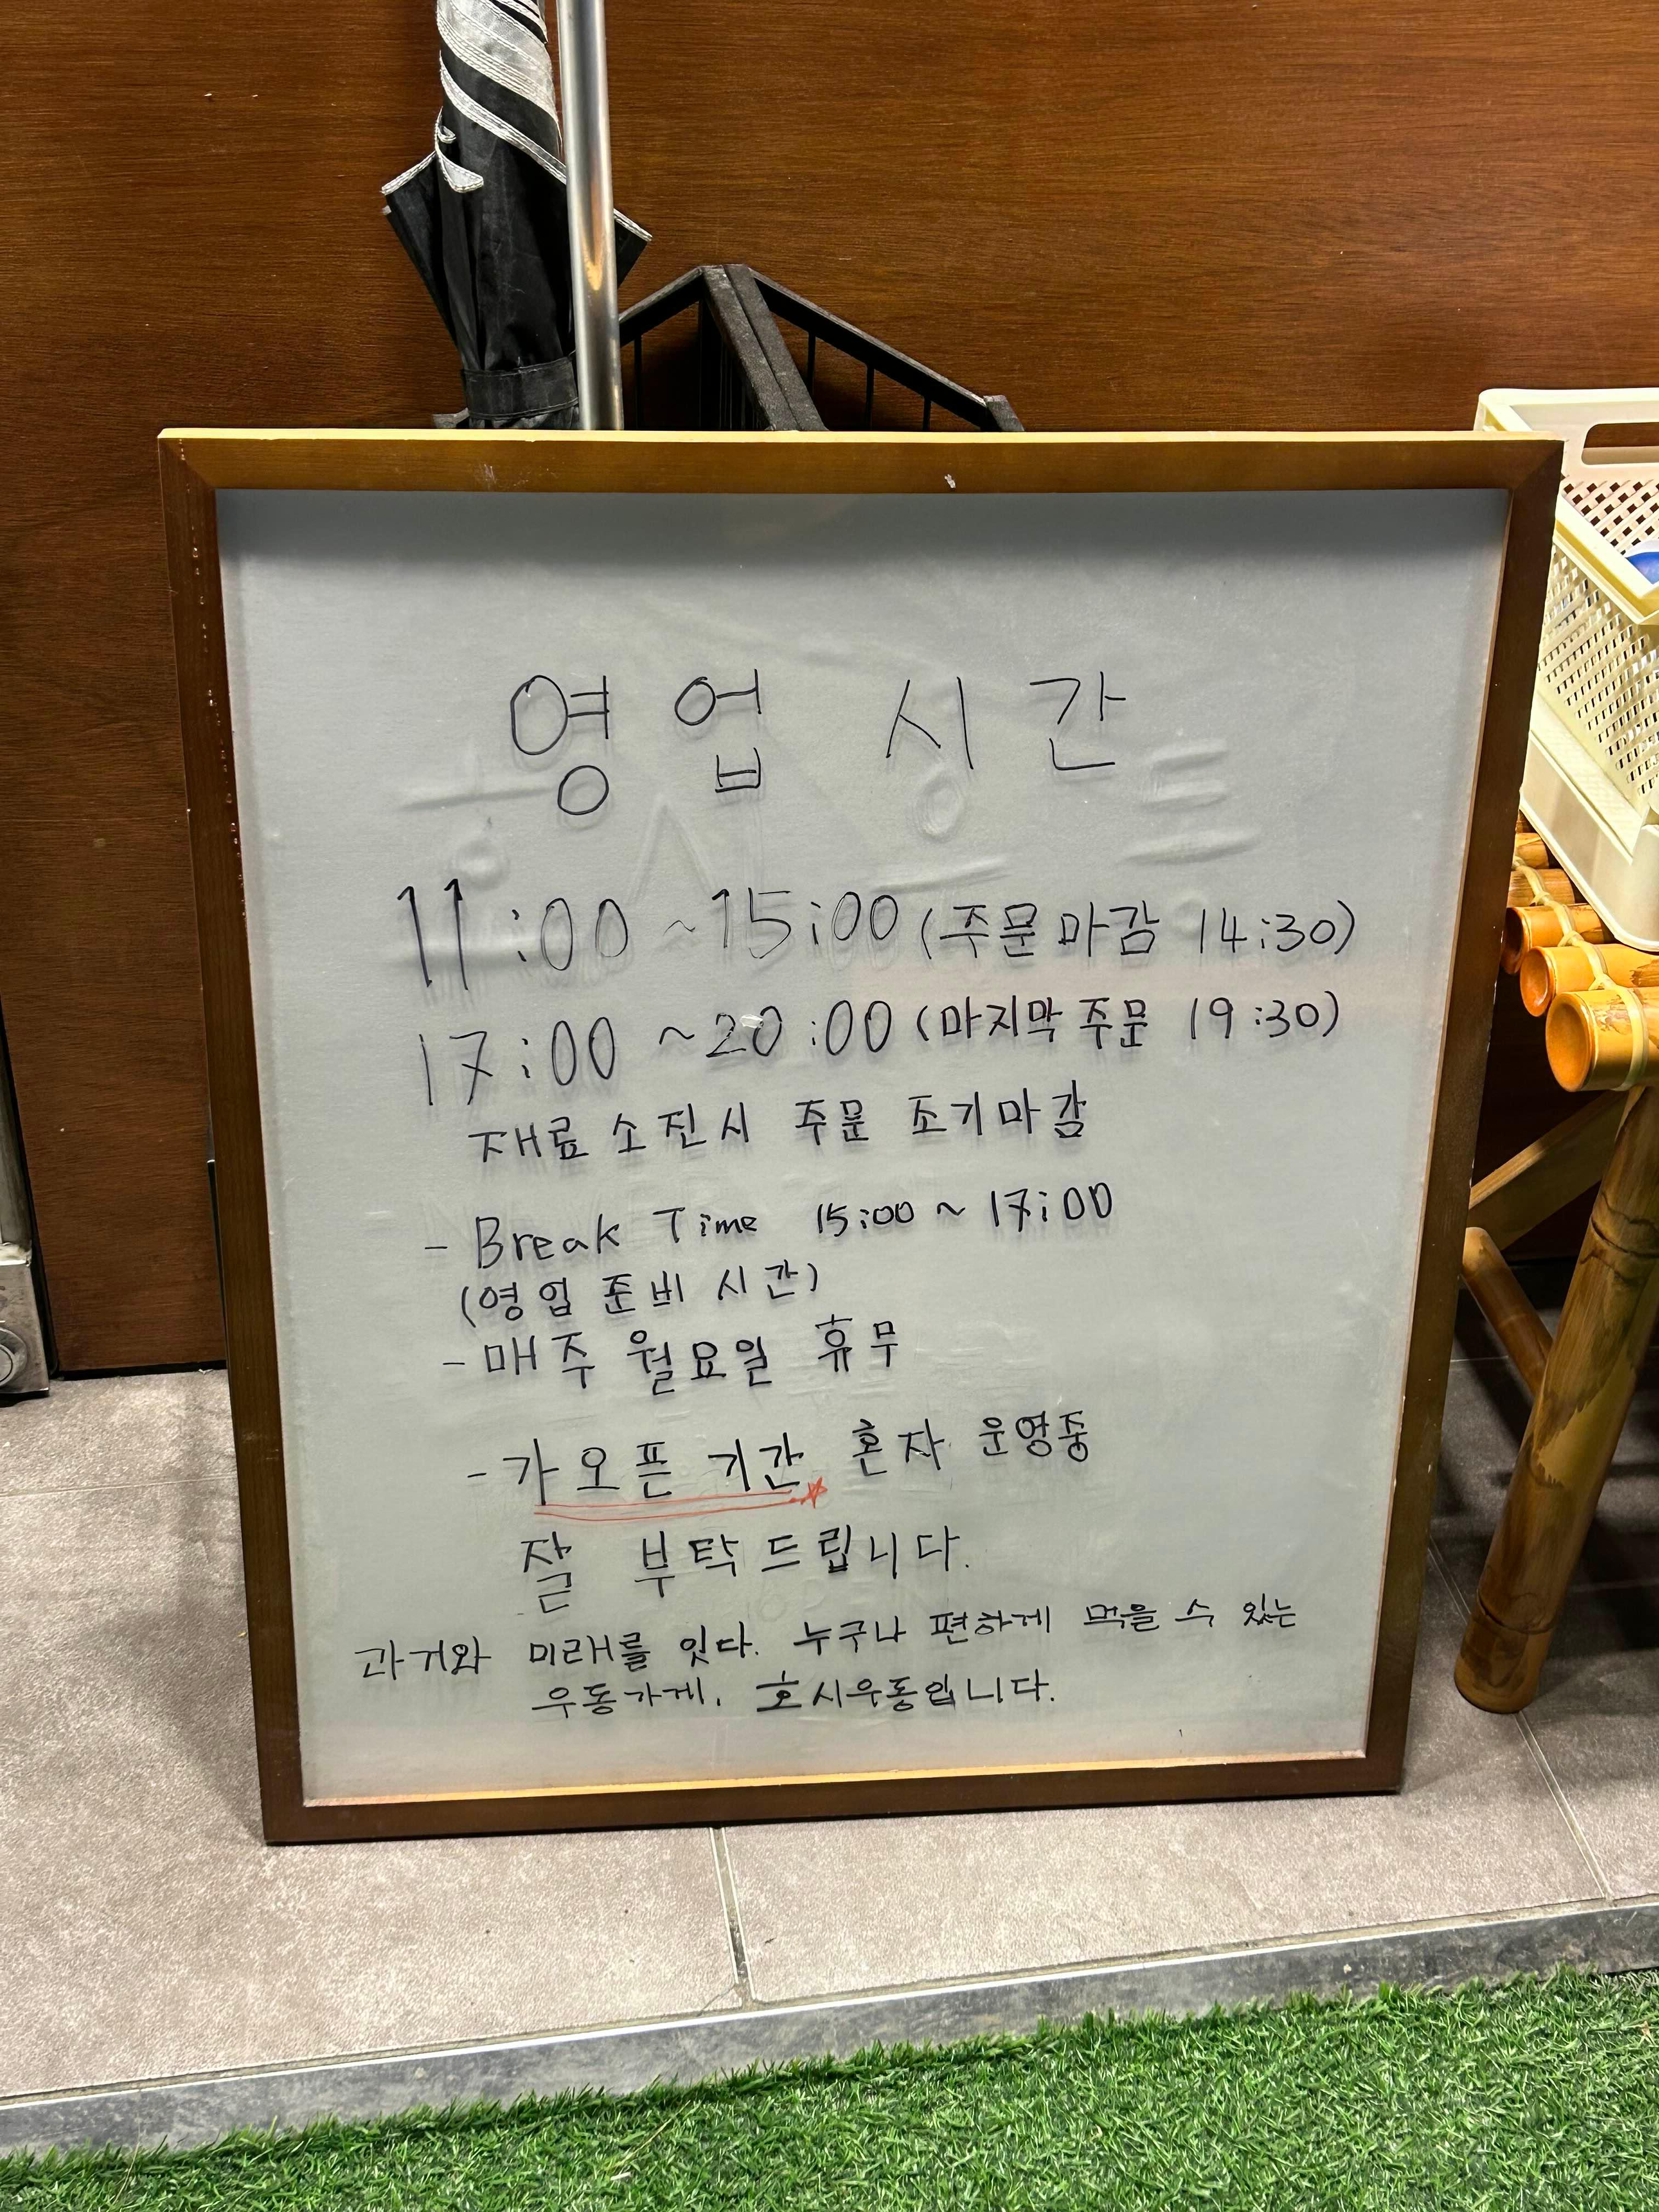 영업 시간
11:00 ~ 15:00 (주문마감 14:30)
17:00 ~ 20:00 (마지막 주문 19:30)
재료 소진시 주문 조기마감
- Break Time 15:00 ~ 17:00
(영업 준비 시간)
- 매주 월요일 휴무
- 가오픈 기간 혼자 운영중
잘 부탁드립니다.
과거와 미래를 잇다. 누구나 편하게 먹을 수 있는
우동가게, 호시우동입니다.